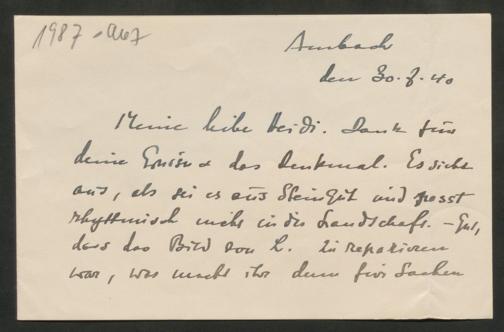 1987
Ambach
den 30. 7. 40
Meine liebe Heidi. Dank für
deine Grüße & das Denkmal. Es sieht
aus, als sei es aus Steingut und passt
rhythmisch nicht in die Landschaft. – Gut,
dass das Bild von L. zu reparieren
war, was macht ihr denn für Sachen